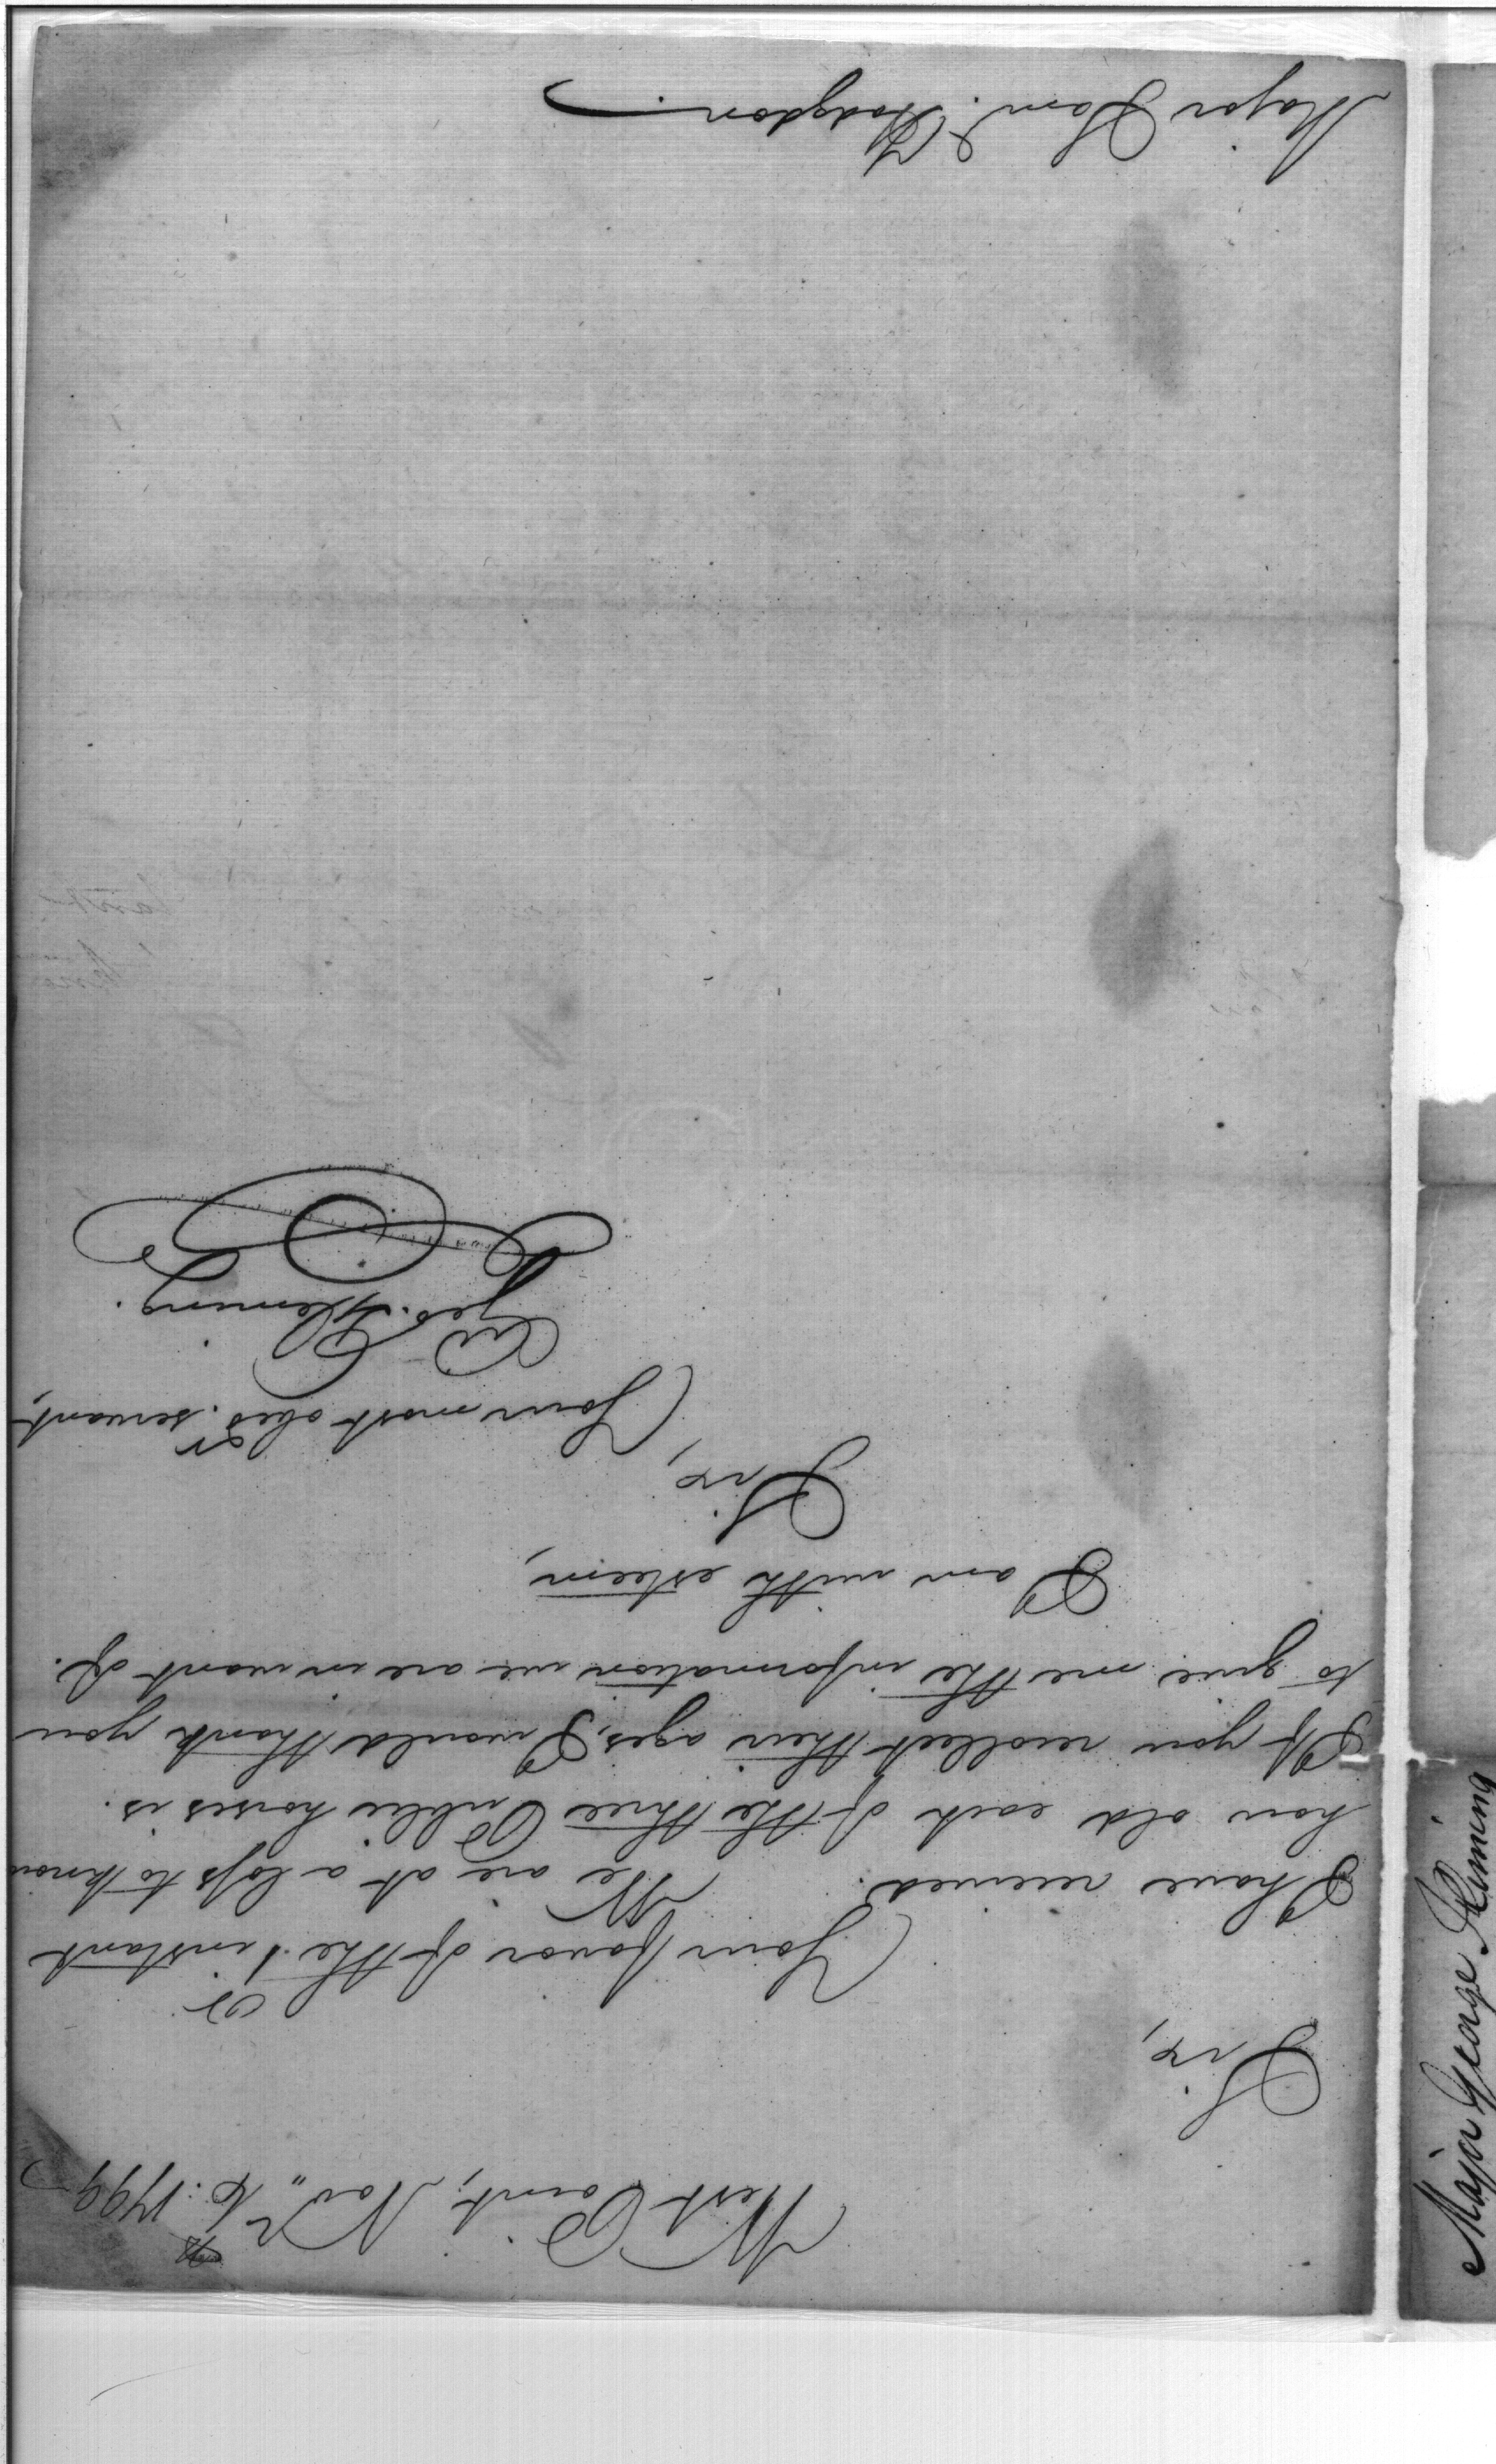 West Point, Nov.r 6th: 1799
Sir,
Your favor of the 1st instant
I have received. We are at a loss to know
how old each of the three Public horses is.
If you recollect their ages, I would thank you
to give me the information we are in want of.
I am with esteem,
Sir,
Your most obed.t servant,
Geo. Fleming.
Major Sam.l Hodgdon.
Major George Fleming